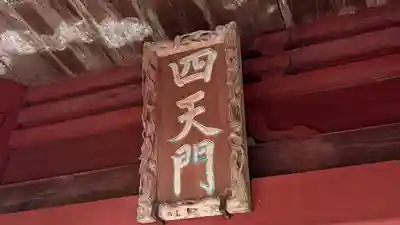 四天門